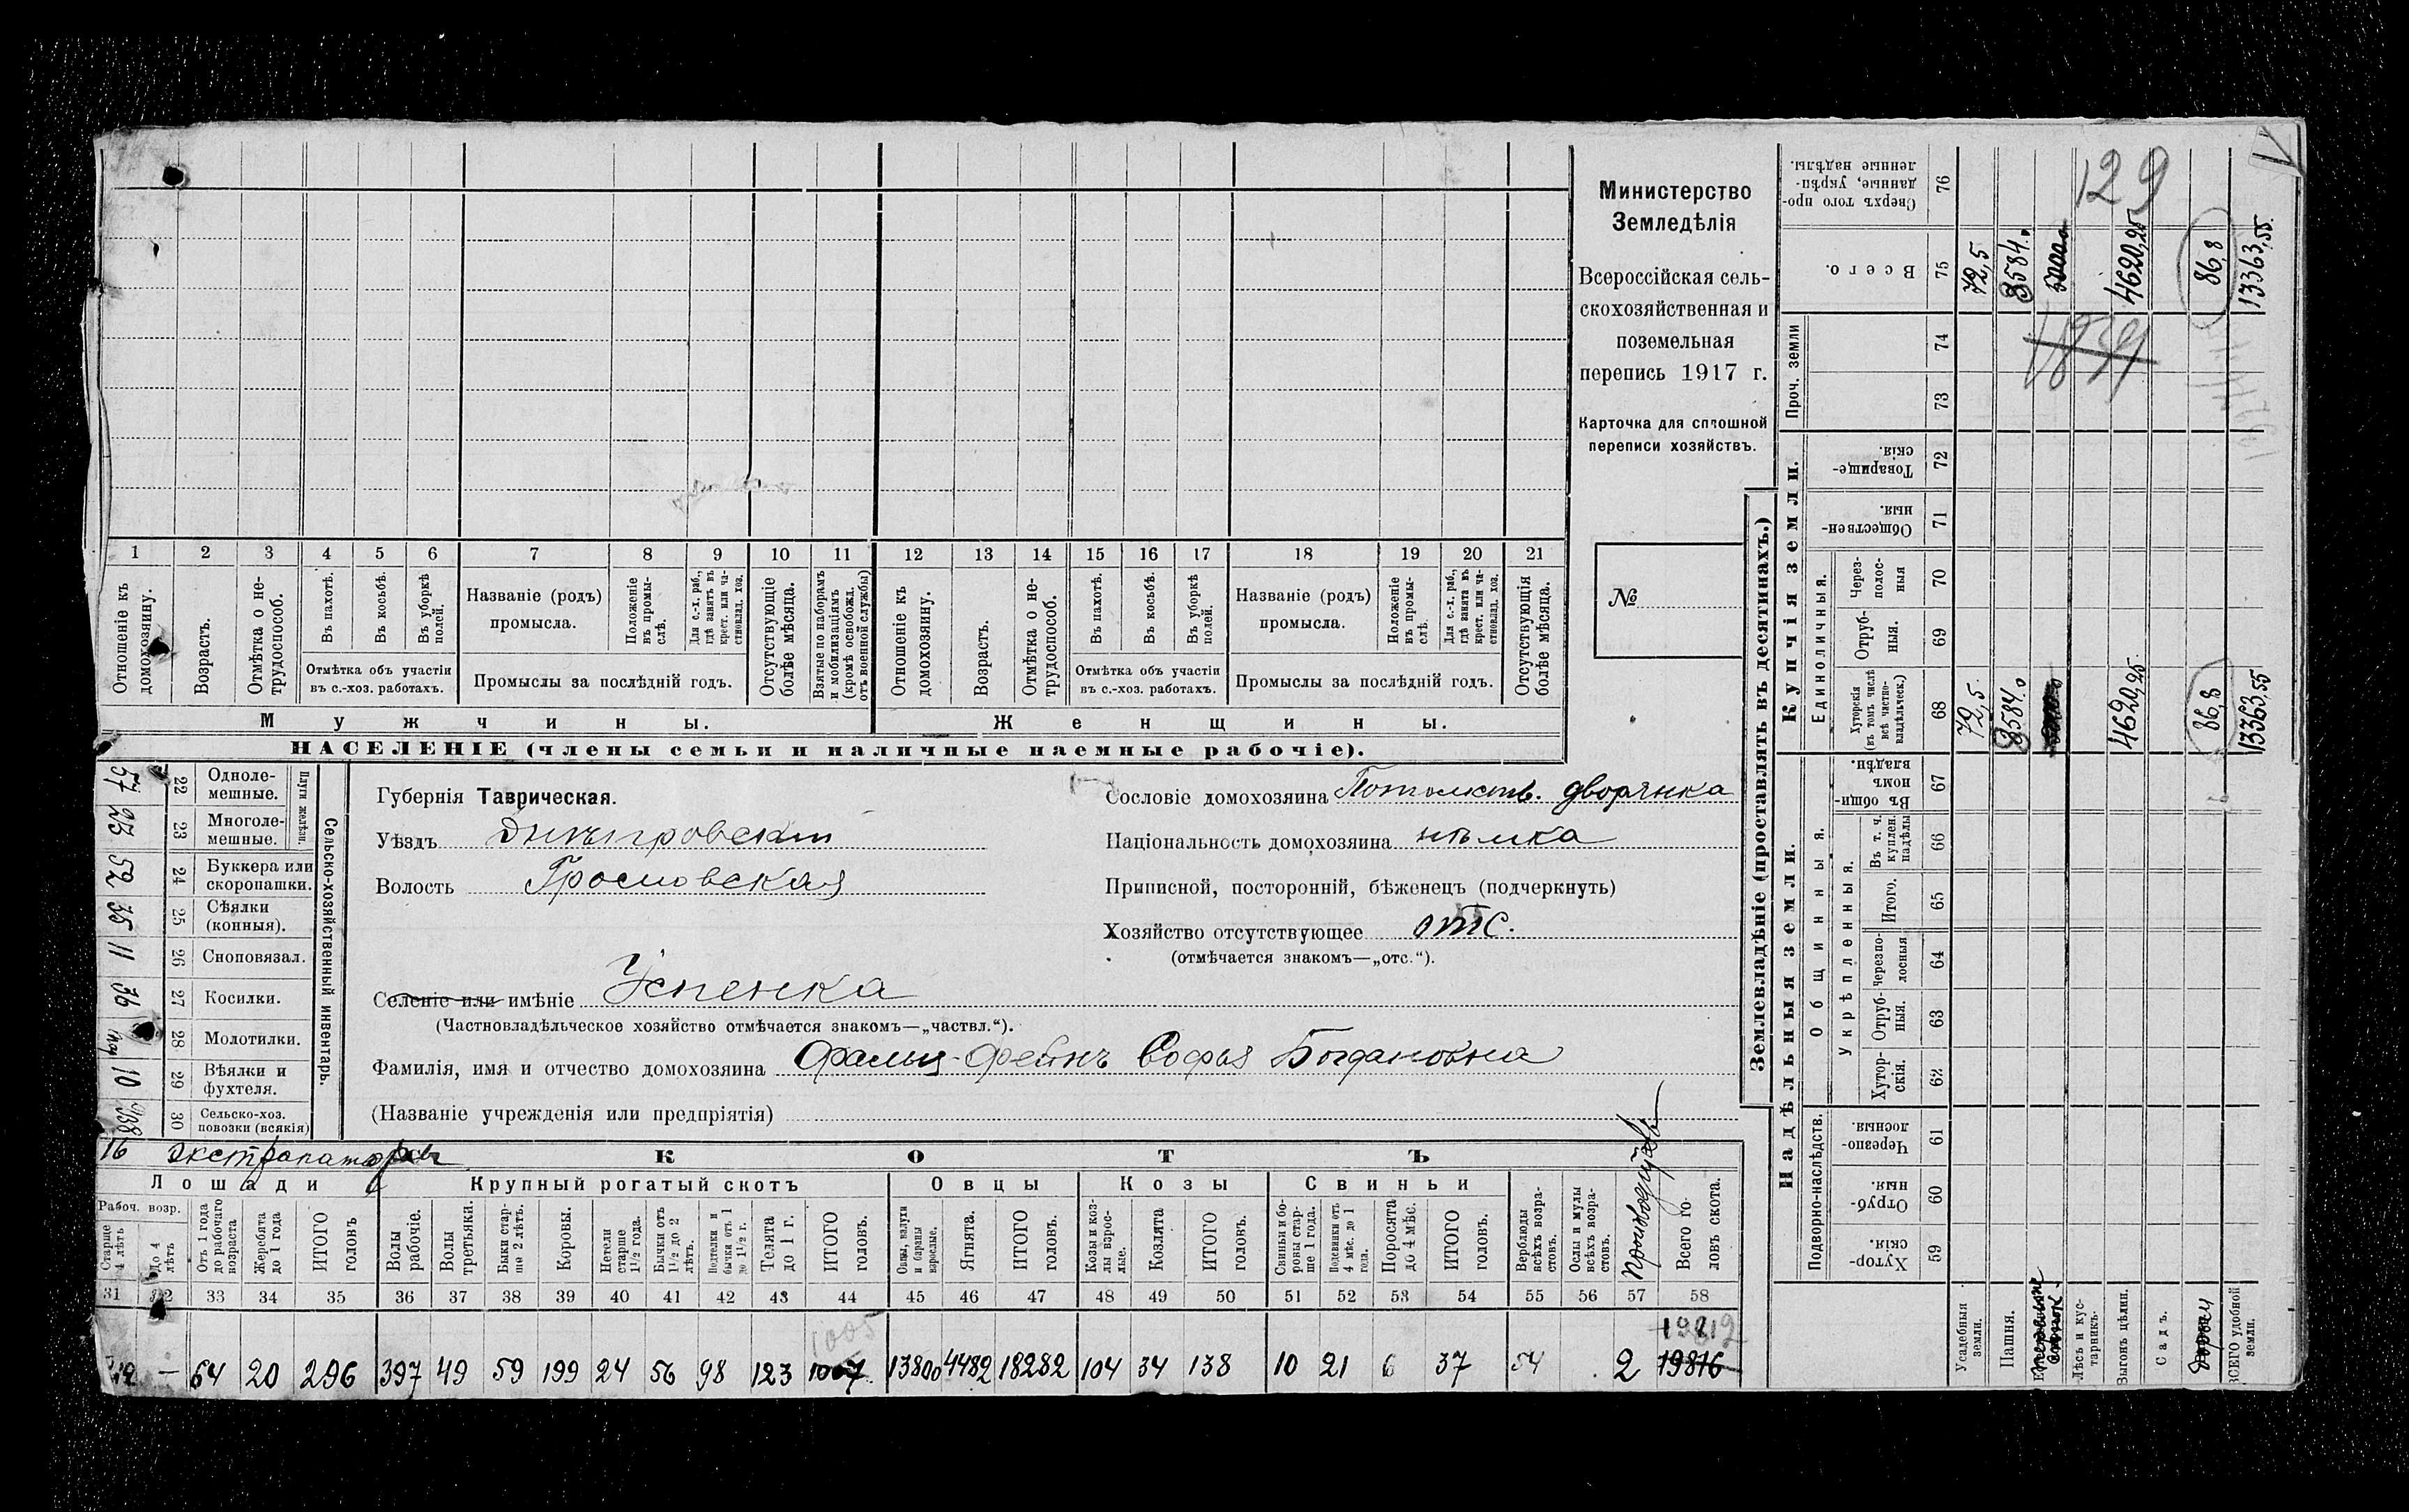 Министерство
Земледѣлія
Всероссійская сель-
скохозяйственная и
поземельная
перепись 1917 г.
Карточка для сплошной
переписи хозяйствъ.
№
1 2 3 4 5 6 7 8 9 10 11 12 13 14 15 16 17 18 19 20 21
Отношеніе къ домохозяину.
Возрастъ.
Отмѣтка о не-трудоспособ.
Въ пахотѣ.
Въ косьбѣ.
Въ уборкѣ полей.
Отмѣтка объ участіи
въ с.-хоз. работахъ.
Названіе (родъ)
промысла.
Положеніе въ промы-слѣ.
Для с.-х. раб., гдѣ занятъ въ крест. или ча-стновлад. хоз.
Промыслы за послѣдній годъ.
Отсутствующіе болѣе мѣсяца.
Взятые по наборамъ и мобилизаціямъ (кромѣ освобожд. отъ военной службы)
Отношеніе къ домохозяину.
Возрастъ.
Отмѣтка о не-трудоспособ.
Въ пахотѣ.
Въ косьбѣ.
Въ уборкѣ полей.
Отмѣтка объ участіи
въ с.-хоз. работахъ.
Названіе (родъ)
промысла.
Положеніе въ промы-слѣ.
Для с.-х. раб., гдѣ занята въ крест. или ча-стновлад. хоз.
Промыслы за послѣдній годъ.
Отсутствующія болѣе мѣсяца.
Мужчины. Женщины.
НАСЕЛЕНІЕ (члены семьи и наличные наемные рабочіе).
Сельско-хозяйственный инвентарь.
Плуги желѣзн.
57 22 Одноле-мешные.
23 23 Многоле-мешные.
52 24 Буккера или скоропашки.
35 25 Сѣялки (конныя).
11 26 Сноповязал.
36 27 Косилки.
28 Молотилки.
10 29 Вѣялки и фухтеля.
30 Сельско-хоз. повозки (всякія)
16 экстрапаторовъ
Губернія Таврическая.
Уѣздъ Днѣпровскій
Волость
Селеніе или имѣніе Успенка
(Частновладѣльческое хозяйство отмѣчается знакомъ—„частвл.“).
Фамилія, имя и отчество домохозяина Фальц-Фейнъ Софья Богдановна
(Названіе учрежденія или предпріятія)
Сословіе домохозяина Потомств. дворянка
Національность домохозяина нѣмка
Приписной, посторонній, бѣженецъ (подчеркнуть)
Хозяйство отсутствующее отс.
(отмѣчается знакомъ—„отс.“).
СКОТЪ
Лошади Крупный рогатый скотъ Овцы Козы Свиньи
Рабоч. возр.
Старше 4 лѣтъ
До 4 лѣтъ
Отъ 1 года до рабочаго возраста
Жеребята до 1 года
ИТОГО головъ
Волы рабочіе.
Волы третьяки.
Быки стар-ше 2 лѣтъ.
Коровы.
Нетели старше 1½ года.
Бычки отъ 1½ до 2 лѣтъ.
Подтелки и бычки отъ 1 до 1½ г.
Телята до 1 г.
ИТОГО головъ.
Овцы, валухи и бараны взрослые.
Ягнята.
ИТОГО головъ.
Козы и коз-лы взрос-лые.
Козлята
ИТОГО головъ.
Свиньи и бо-ровы стар-ше 1 года.
Подсвинки отъ 4 мѣс. до 1 года.
Поросята до 4 мѣс.
ИТОГО головъ.
Верблюды всѣхъ возра-стовъ.
Ослы и мулы всѣхъ возра-стовъ.
Всего го-ловъ скота.
31 32 33 34 35 36 37 38 39 40 41 42 43 44 45 46 47 48 49 50 51 52 53 54 55 56 57 58
1005 19812
– 64 20 296 397 49 59 199 24 56 98 123 1007 13800 4482 18282 104 34 138 10 21 6 37 54 2 19816
Землевладѣніе (проставлять въ десятинахъ.)
Надѣльныя земли. Купчія земли. Проч. земли
Подворно-наслѣдств. Общинныя. Единоличныя.
Укрѣпленныя.
Хутор-скія. 59
Отруб-ныя. 60
Черезпо-лосныя. 61
Хутор-скія. 62
Отруб-ныя. 63
Черезпо-лосныя 64
Итого. 65
Въ т. ч. куплен. надѣлы 66
Въ общи-номъ владѣн. 67
Хуторскія (въ томъ числѣ всѣ частно-владѣльческ.) 68
Отруб-ныя. 69
Через-полос-ныя 70
Обществен-ныя. 71
Товарище-скія. 72
73
74
Всего. 75
Сверхъ того про-данные, укрѣп-ленные надѣлы. 76
Усадебныя земли. 72,5 72,5
Пашня. 8584.0 8584.0
Лѣсъ и кус-тарникъ.
Выгонъ цѣлин. 4620,25 4620,25
Садъ.
86,8 86,8
ВСЕГО удобной земли. 13363,55 13363,55
129
1839